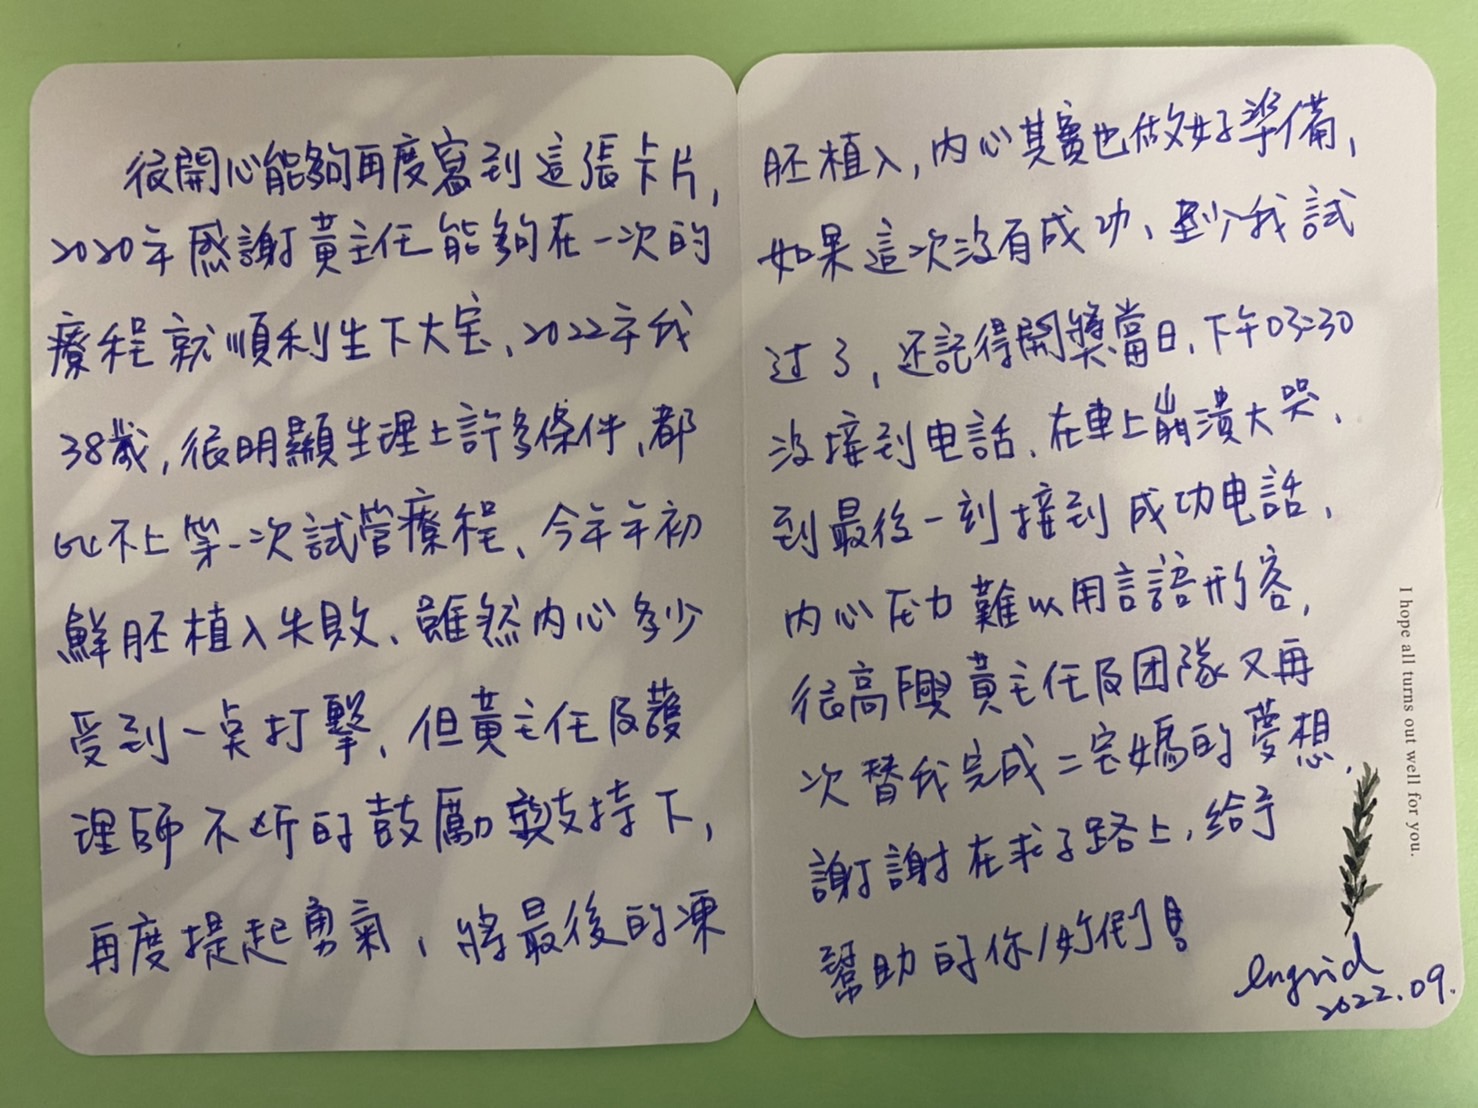 很開心能夠再度寫到這張卡片,
2020年感謝黃主任能夠在一次的
療程就順利生下大宝、2022年我
38歲,很明顯生理上許多條件,都
比不上第一次試管療程、今年年初
鮮胚植入失敗、雖然內心多少
受到一点打擊,但黃主任及護
理師不断的鼓勵與支持下,
再度提起勇氣,將最後的凍
胚植入,內心其實也做好準備,
如果這次沒有成功、至少我試
过了,还記得開獎當日,下午03:30
沒接到电話、在車上崩潰大哭、
到最後一刻接到成功电話,
內心压力難以用言語形容,
很高興黃主任及团隊又再
次替我完成二宝媽的夢想,
謝謝在求子路上,給予
幫助的你/妳們!
Ingrid
2022.09.
I hope all turns out well for you.